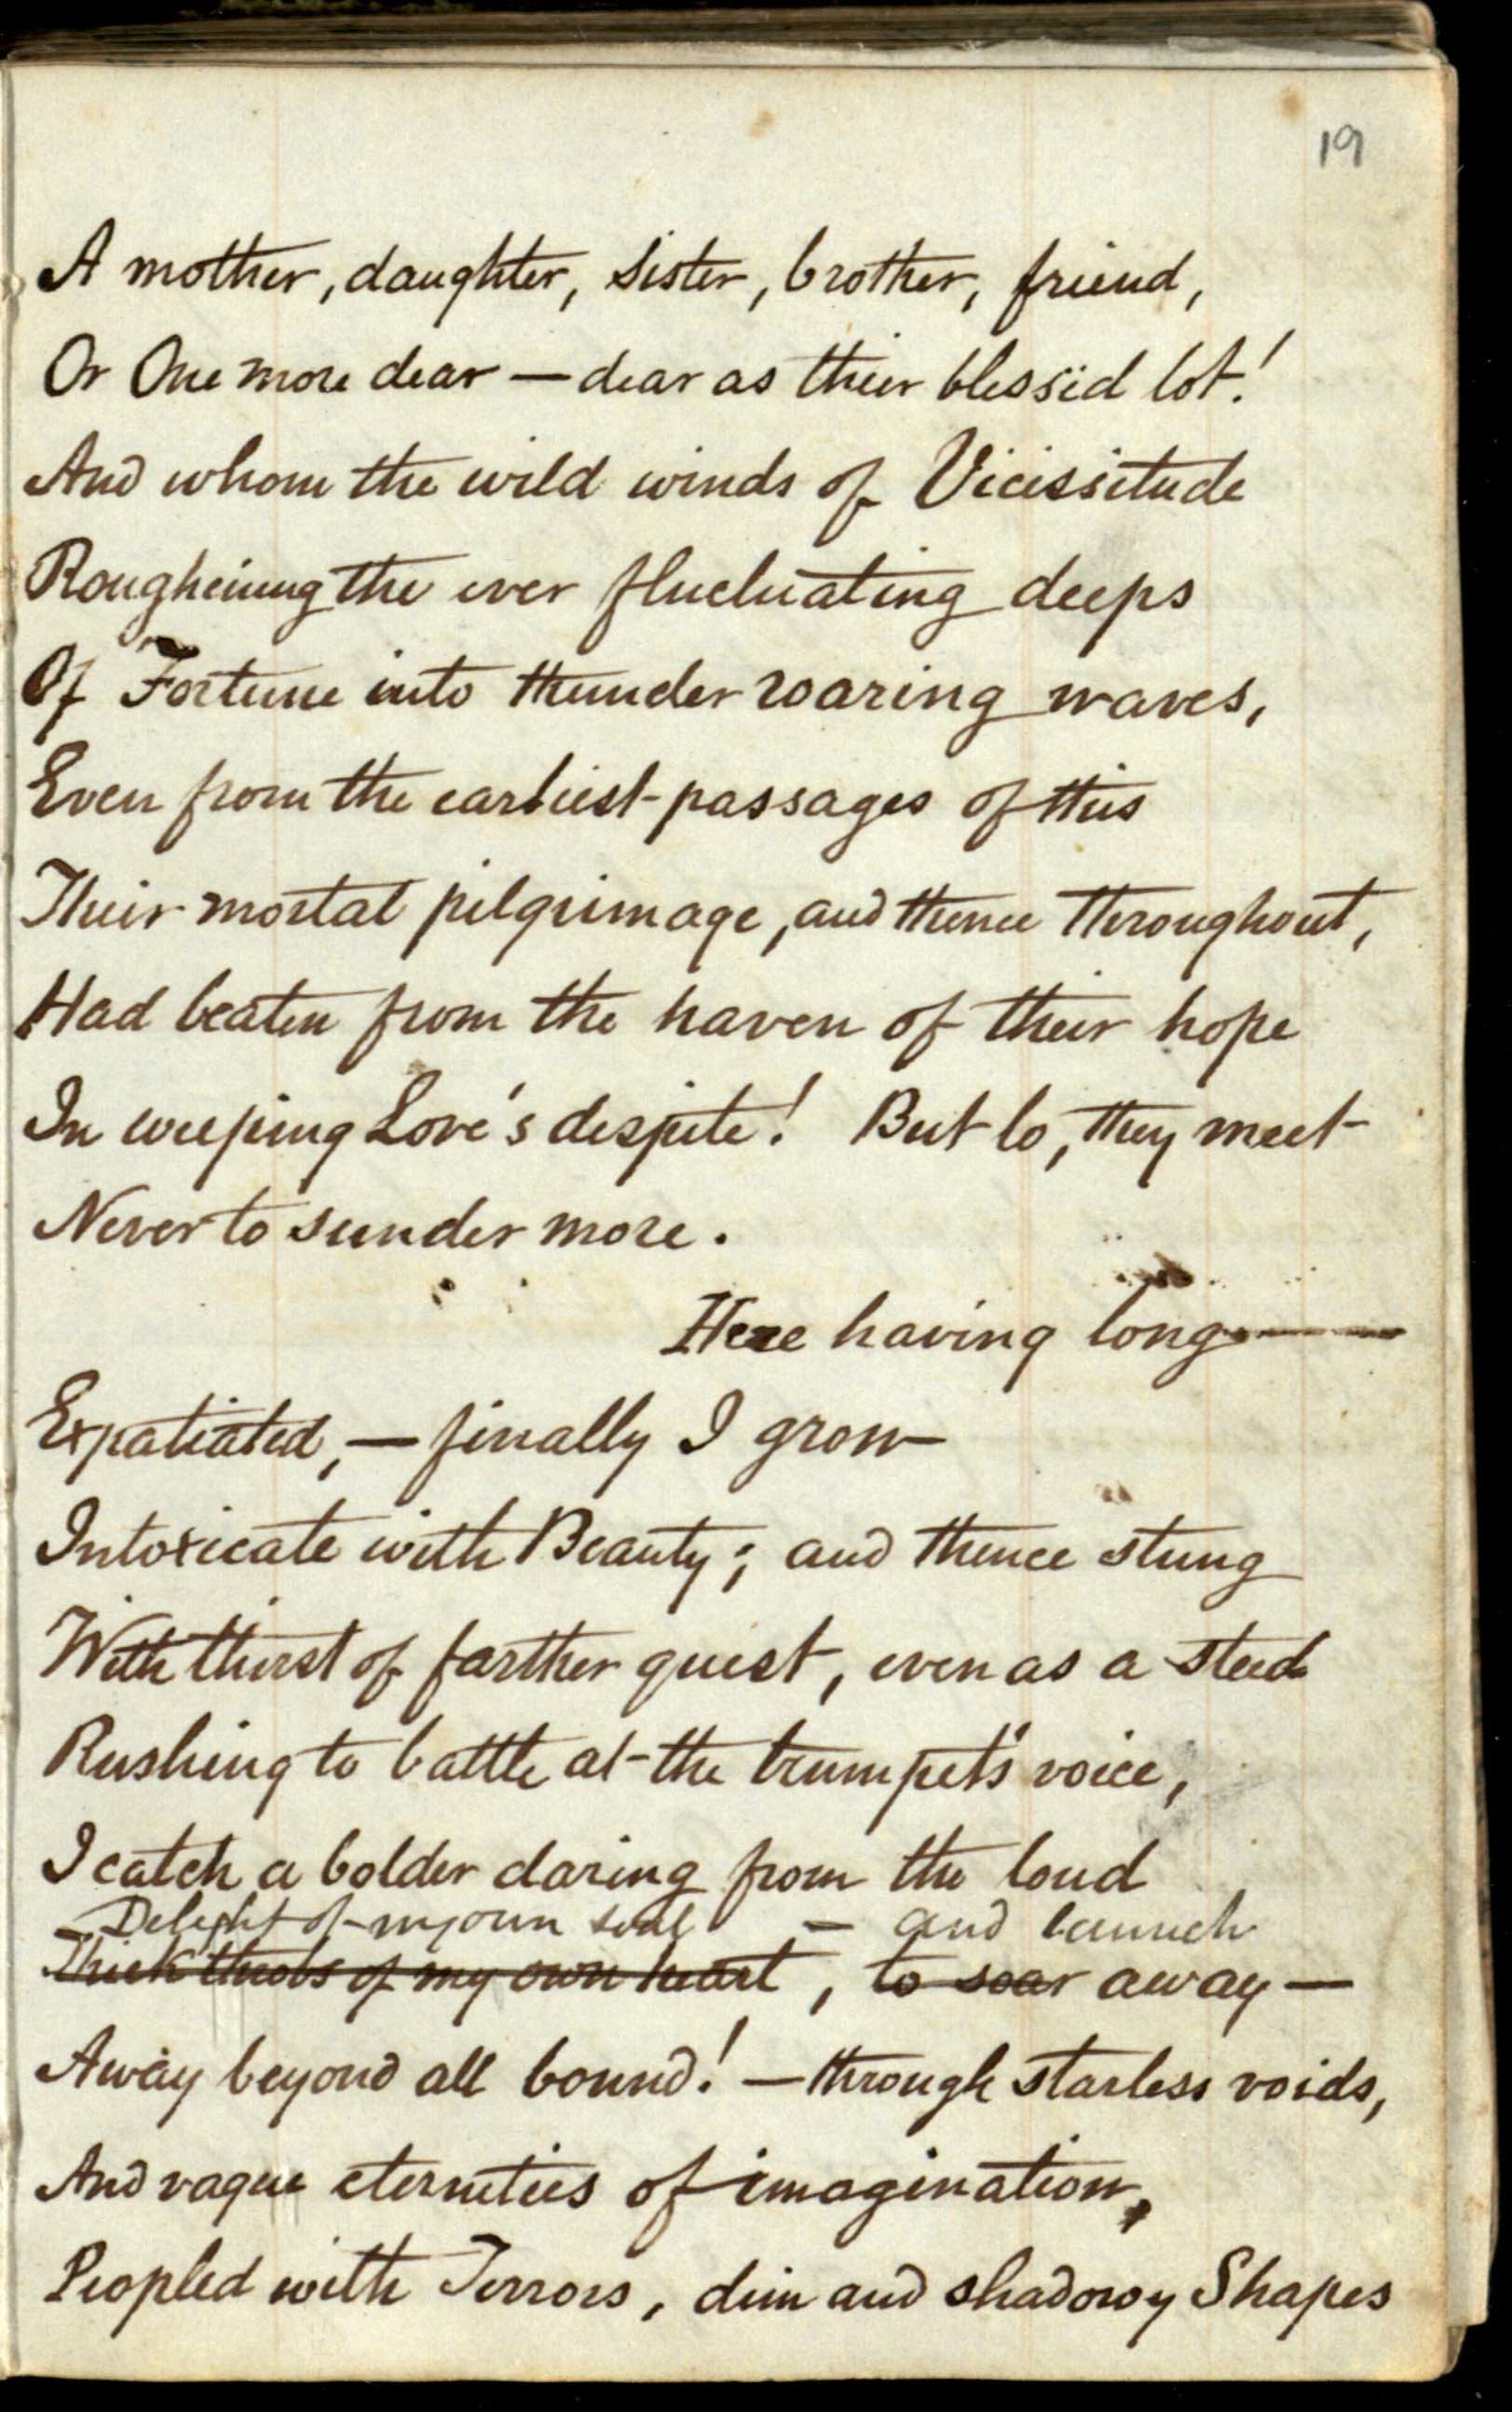 19
A mother, daughter, sister, brother, friend,
Or One more dear — dear as their blessid lot!
And whom the wild winds of Vicissitude
Rougheining the ever fluctuating deeps
Of Fortune into thunder roaring waves,
Even from the earliest passages of this
Their mortal pilgrimage, and thence throughout,
Had beaten from the haven of their hope
In weeping Love's despite! But lo, they meet
Never to sunder more.
Here having long
Expatiated, — finally I grow
Intoxicate with Beauty; and thence stung
With thirst of farther quest, even as a steed
Rushing to battle at the trumpet's voice,
I catch a bolder daring from the loud
Delight of my own soul — and launch
Thick throbs of my own heart, to soar away —
Away beyond all bound! — through starless voids,
And vague eternities of imagination,
Peopled with Terrors, dim and shadowy Shapes